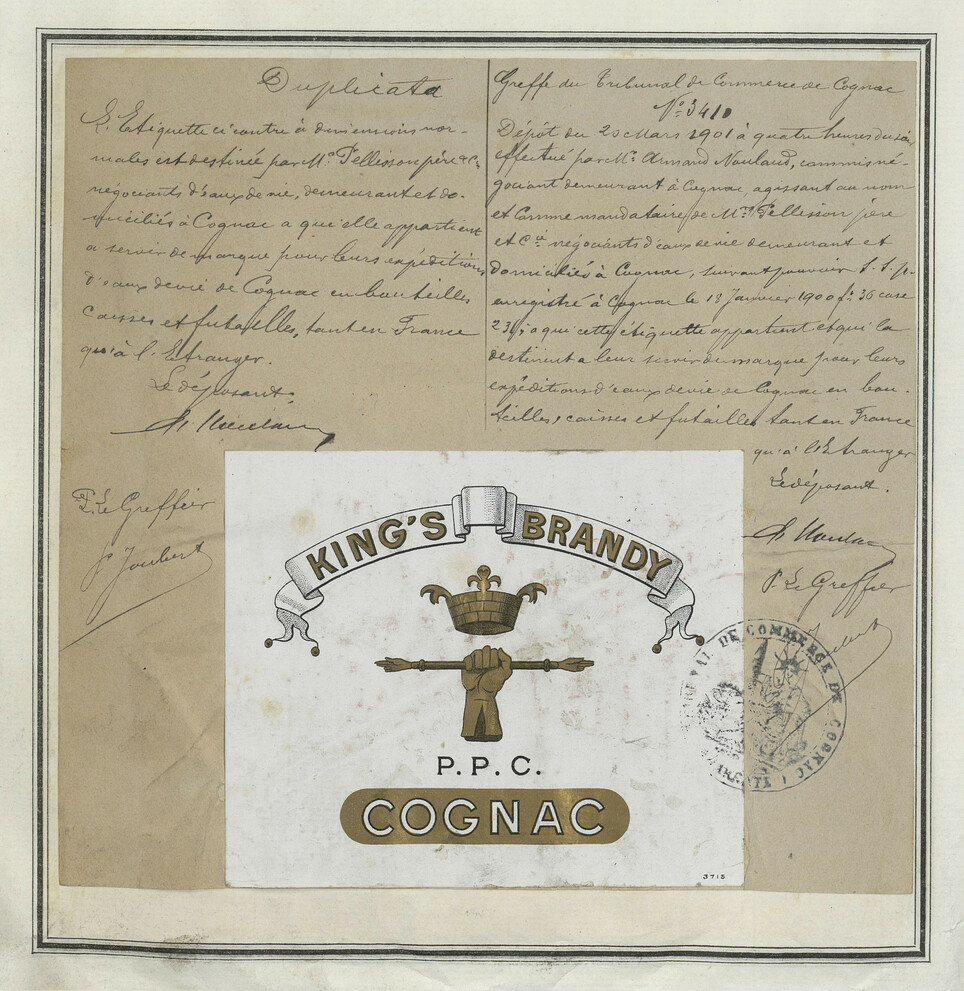 Duplicata
L'Etiquette ci contre à dimensions nor-
males est destinée par Mrs Pellisson père & Co
négociants d'eaux de vie, demeurant et do-
miciliés à Cognac a qui elle appartient
a servir de marque pour leurs expéditions
d'eaux de vie de Cognac en bouteilles
caisses et futailles, tant en France
qu'à l'Etranger.
Le déposant.
P. Le Greffier
P Joubert
Greffe du Tribunal de Commerce de Cognac
No 3410
Dépôt du 20 Mars 1901 à quatre heures du soir
effectué par Mr Armand Naulaud, commis né-
gociant demeurant à Cognac, agissant au nom
et comme mandataire de Mrs Pellisson père
et Co négociants d'eaux de vie demeurant et
domiciliés à Cognac, suivant pouvoir S. S. p.
enregistré à Cognac le 18 Janvier 1900 fo 36 case
23, a qui cette étiquette appartient et qui la
destinent a leur servir de marque pour leurs
expéditions d'eaux de vie de Cognac en bou-
teilles, caisses et futailles tant en France
qu'à l'Etranger
Le déposant.
P. Le Greffier
Joubert
KING'S BRANDY
P.P.C.
COGNAC
3715
DE COMMERCE DE COGNAC